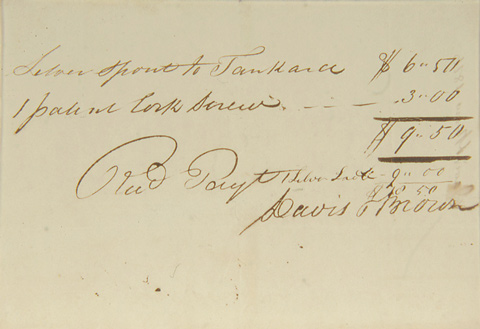 Silver Spout to Tankard $ 6"50
1 patent Cork Screw. — — — .3"00
$ 9"50
Recd Payt
9"00
50
Davis & Brown